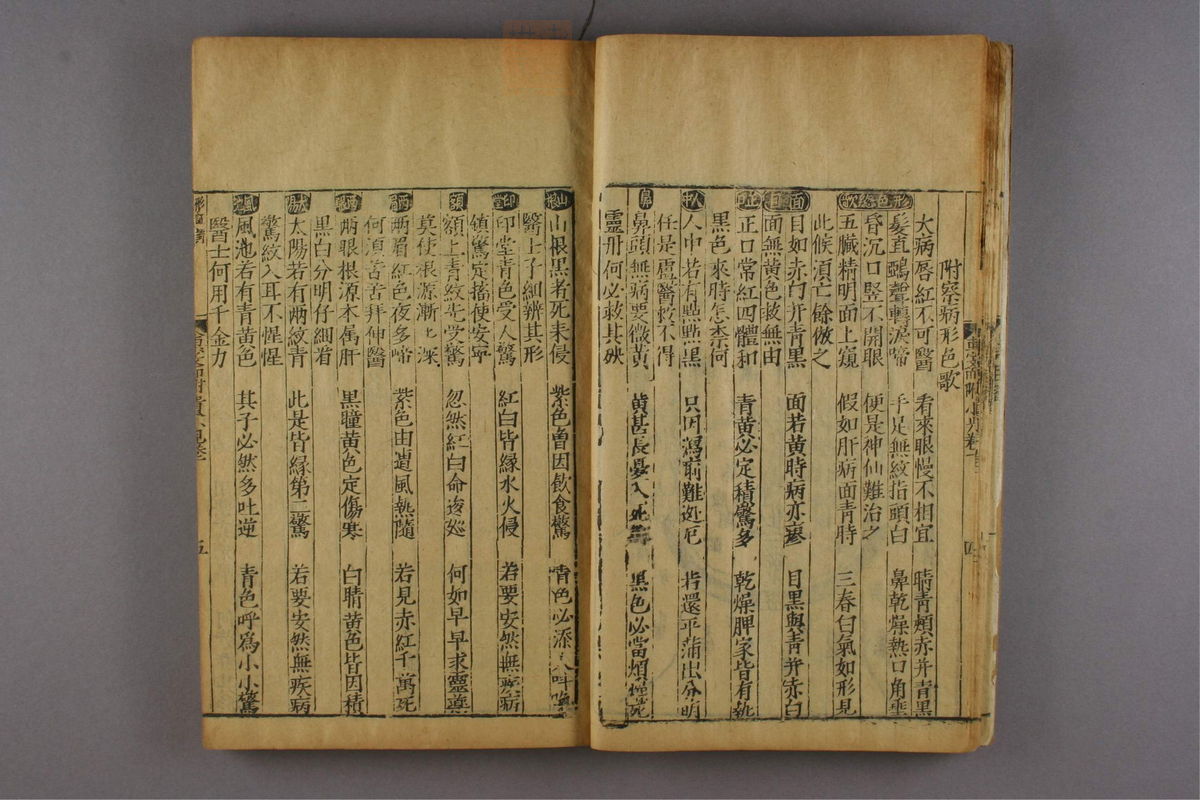 附察病形色歌
形色総歌
大病唇紅不可醫 看來眼慢不相宜 睛青頰赤并青黑
髮直鵶聲轉淚啼 手足無紋指頭白 鼻乾燥熱口角垂
昏沉口竪不開眼 便是神仙難治之
五臟精明面上窺 假如肝病面青時 三春白氣如形見
此候須亡餘倣之
面目
目如赤白并青黑 面若黃時病亦瘳 目黑與青并赤白
面無黃色救無由
正口
正口常紅四體和 青黃必定積驚多 乾燥脾家皆有熱
黑色來時怎柰何
人中
人中若有點點黑 只因瀉痢難逃厄 若還平蒲出分明
任是盧醫救不得
鼻
鼻頭無病要微黃 黃甚長憂入死 黑色必當煩躁死
靈丹何必救其殃
山根
山根黑者死來侵 紫色曾因飲食驚 青色必添
醫士子細辨其形
印堂
印堂青色受人驚 紅白皆緣水火侵 若要安然無疾病
鎮驚定搐使安寧
額
額上青紋先受驚 忽然紅白命逡廵 何如早早求靈藥
莫使根源漸匕深
兩眉
兩眉紅色夜多啼 紫色由遺風熱隨 若見赤紅千萬死
何須苦苦拜伸醫
兩眼
兩眼根源本属肝 黑瞳黃色定傷寒 白睛黃色皆因積
黑白分明仔細看
太陽
太陽若有兩紋青 此是皆緣第二驚 若要安然無疾病
驚紋入耳不惺惺
風池
風池若有青黃色 其子必然多吐逆 青色呼爲小小驚
醫士何用千金力
五